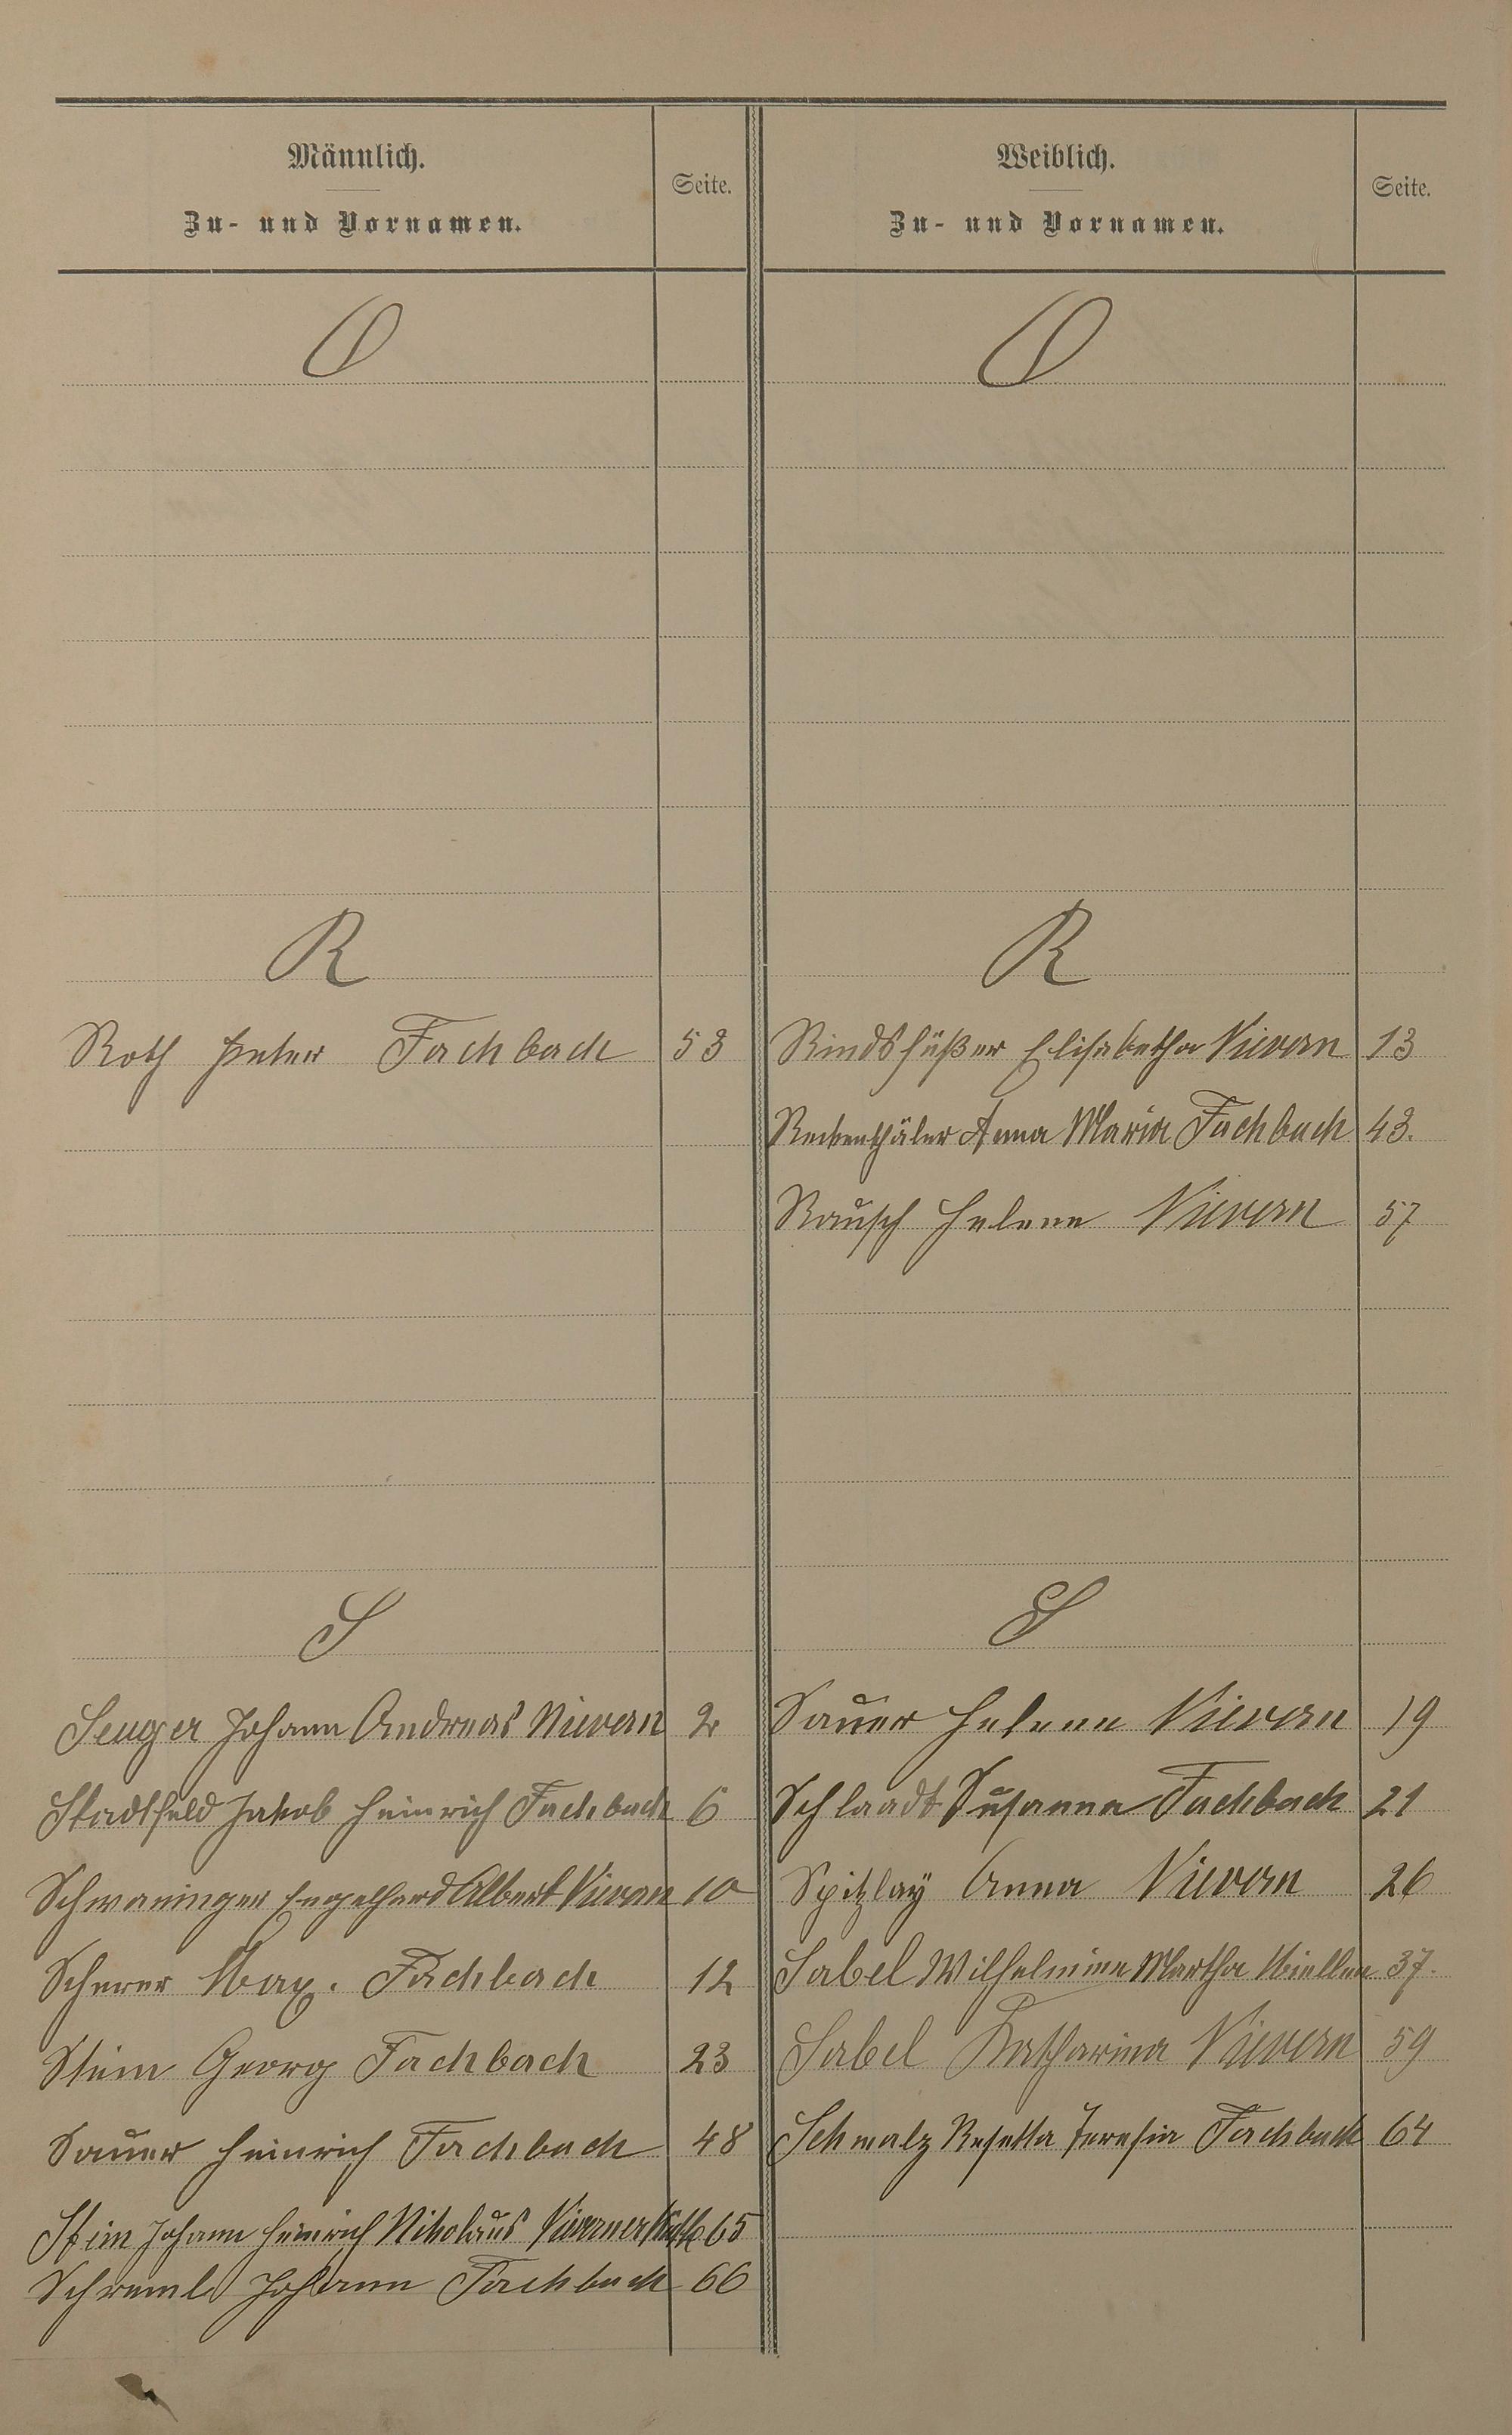 Männlich.
Zu- und Vornamen.
Seite.
Weiblich.
Zu- und Vornamen.
Seite.
O
O
R
R
Roth Peter Fachbach 53
Rindsfüßer Elisabetha Nievern 13
Reckenthäler Anna Maria Fachbach 43.
Rausch Helene Nievern 57
S
S
Senger Johann Andreas Nievern 2
Stadtfeld Jakob Heinrich Fachbach 6
Schwaninger Engelhard Albert Nievern 10
Scherer Max. Fachbach 12
Stein Georg Fachbach 23
Sauer Heinrich Fachbach 48
Stein Johann Heinrich Nikolaus Nieverner 65
Schreml Johann Fachbach 66
Sauer Helene Nievern 19
Schlaadt Susanna Fachbach 21
Spitzlay Anna Nievern 26
Sabel Wilhelmine Martha Miellen 37.
Sabel Katharina Nievern 59
Schmalz Rosetta Teresia Fachbach 64